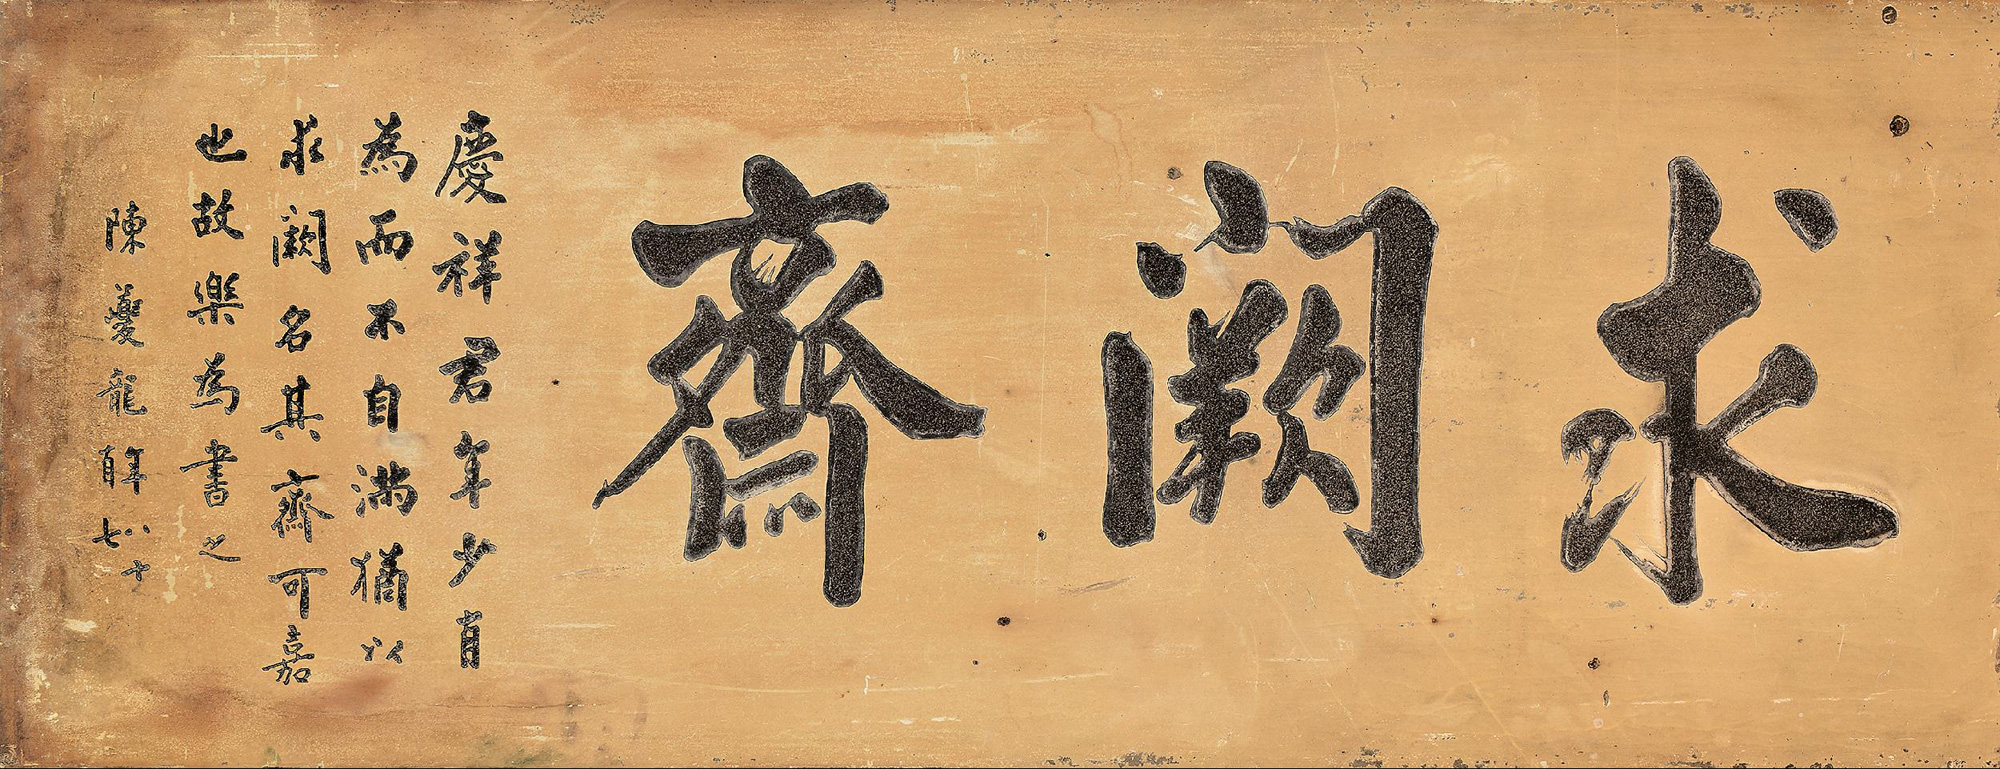 求闕齋
慶祥君年少有
為而不自滿猶以
求闕名其齋可嘉
也故樂為書之
陳夔龍年七十